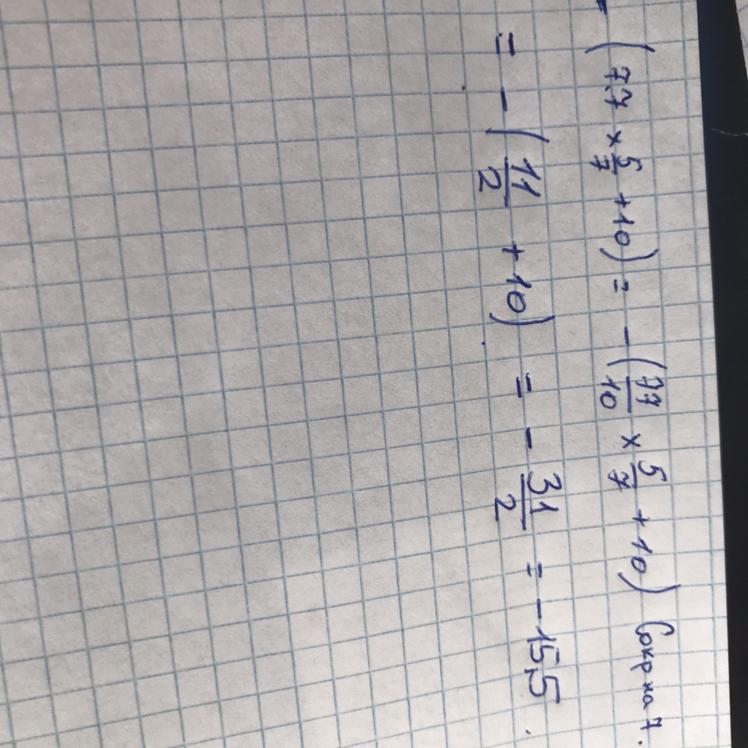 - (7,7 × 5/7 + 10) = - (77/10 × 5/7 + 10) Сокр на 7.
= - (11/2 + 10) = - 31/2 = - 15,5.